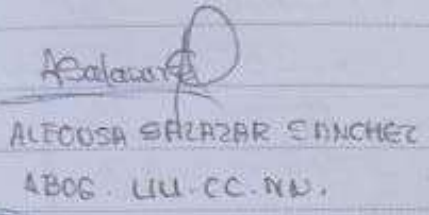 ASalazarS
ALFOUSA SALAZAR SANCHEZ
ABOG. UU.CC.NN.